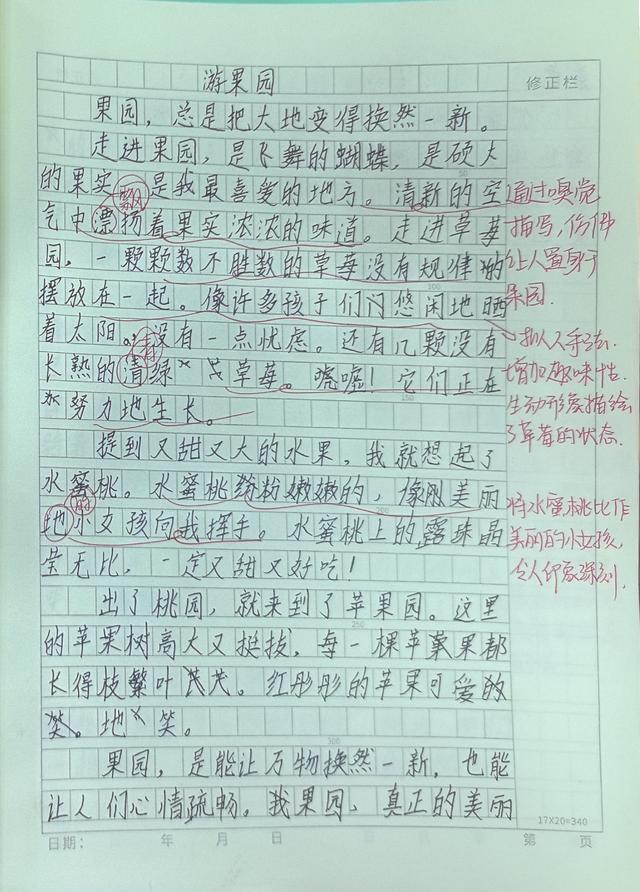 游果园
修正栏
果园，总是把大地变得换然一新。
走进果园，是飞舞的蝴蝶，是硕大
的果实 是我最喜爱的地方。清新的空
飘
气中漂扬着果实浓浓的味道。走进草莓
园，一颗颗数不胜数的草莓没有规律的
摆放在一起。像许多孩子们 悠闲地晒
着太阳。没有一点忧虑。还有几颗没有
青
长熟的清绿 草莓。 它们正在
努力地生长。
提到又甜又大的水果，我就想起了
水蜜桃。水蜜桃粉粉嫩嫩的，像 美丽
的
地小女孩向我挥手。水蜜桃上的露珠晶
莹无比，一定又甜又好吃！
出了桃园，就来到了苹果园。这里
的苹果树高大又挺拔，每一棵苹果都
长得枝繁叶茂。红彤彤的苹果可爱的
笑。地 笑。
果园，是能让万物换然一新，也能
让人们心情疏畅。我果园、真正的美丽
通过嗅觉
描写，仿佛
让人置身于
果园.
拟人手法.
增加趣味性.
生动形象描绘
了草莓的状态.
将水蜜桃比作
美丽的小女孩，
令人印象深刻.
50
100
150
200
250
300
17X20=340
日期： 年 月 日 第 页